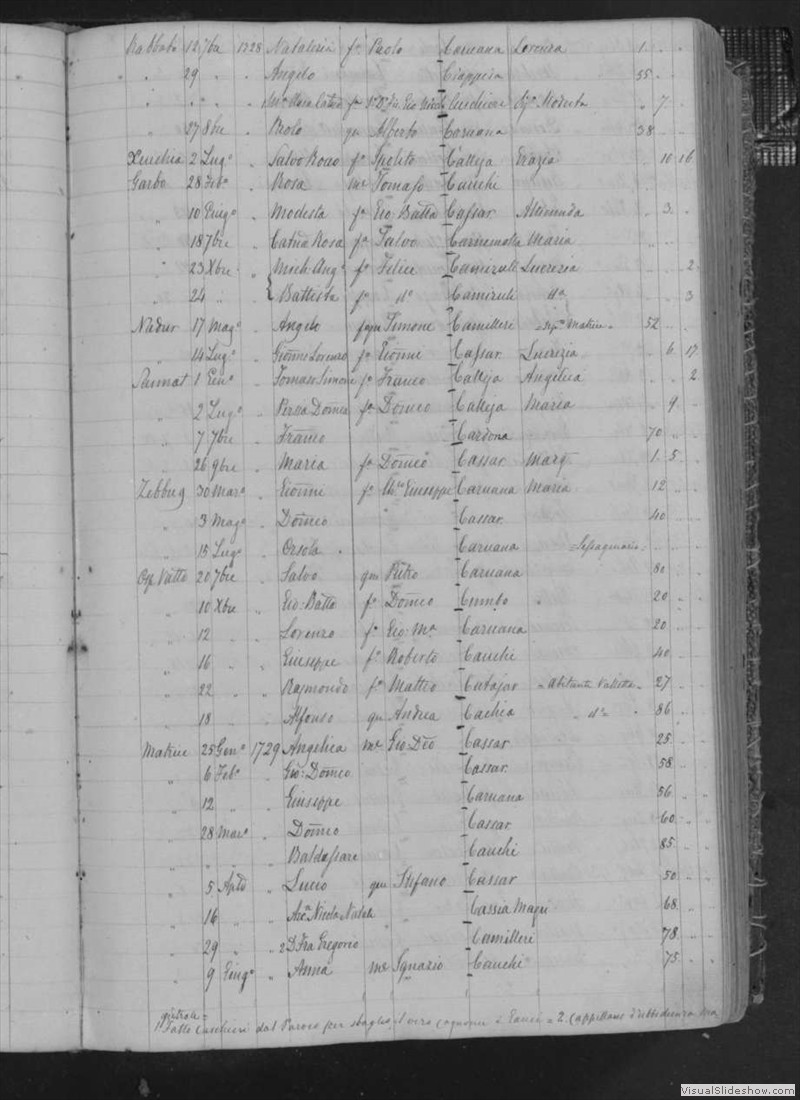 Rabbato 12 7bre 1728 Natalizia fa Paolo Caruana Lorenza 1 . .
" 29 " " Angelo Ciappira 55 . .
" " " " Ma Maria Caterina fa Cauchi Modesta " 7 .
" 27 8bre " Paolo qm Alberto Caruana 38 . .
Xeuchia 2 Lugo " Salvo Rocco fo Ipolito Calleja Grazia . 10 16
Garbo 28 Febo " Rosa me Tomaso Cauchi
" 10 Giugo " Modesta fa Gio: Batta Cassar Alimunda . 3 .
" 18 7bre " Catna Rosa fa Salvo Maria
" 23 Xbre " Mich Ango fo Felice Camizuli Lucrezia . . 2
" 24 " " Battista fo do Camizuli da . . 3
Nadur 17 Mago " Angelo Simone Camilleri Matrice 52 . .
" 14 Lugo " Gionni Lorenzo fo Gionni Cassar Lucrezia . 6 17
Sannat 1 Geno " Tomaso Simone fo Franco Calleja Angelica . . 2
" 2 Lugo " Domca fa Domco Calleja Maria . 9 .
" 7 7bre " Franco " Cardona 70 " .
" 26 9bre " Maria fa Domco Cassar Margta 1 . 5 .
Zebbug 30 Maro " Gionni fo Giuseppe Caruana Maria 12 . .
" 3 Mago " Domco " Cassar 40 . .
" 15 Lugo " Orsola . Caruana
20 7bre " Salvo qm Pietro Caruana 80 . .
" 10 Xbre " Gio: Batta fo Domco Cumbo 20 . .
" 12 " Lorenzo fo Gio: Ma Caruana 20 . .
" 16 " " Giuseppe fo Roberto Cauchi 40 . .
" 22 " Raymondo fo Matteo Cutajar - abitante Valletta - 27 . .
" 18 " Alfonso qm Andrea Cachia " do = . 86 . .
Matrice 25 Geno 1729 Angelica me Gio: Dco Cassar 25 . .
" 6 Febo " Gio: Domco Cassar 58 . .
" 12 " " Giuseppe Caruana 56 " "
" 28 Maro " Domco Cassar 60 . .
" " " Baldassare Cauchi 85 . .
" 5 Aple " Lucio qm Stefano Cassar 50 . .
" 16 " Nicola Natale " Cassia Magri 68 . .
" 29 " 2 D. Fra Gregorio Camilleri 78 . .
" 9 Giugo " Anna me Ignazio Cauchi 75 . .
dal Paroco per sbaglio il vero = 2. Cappellano d'ubbidienza
VisualSlideshow.com